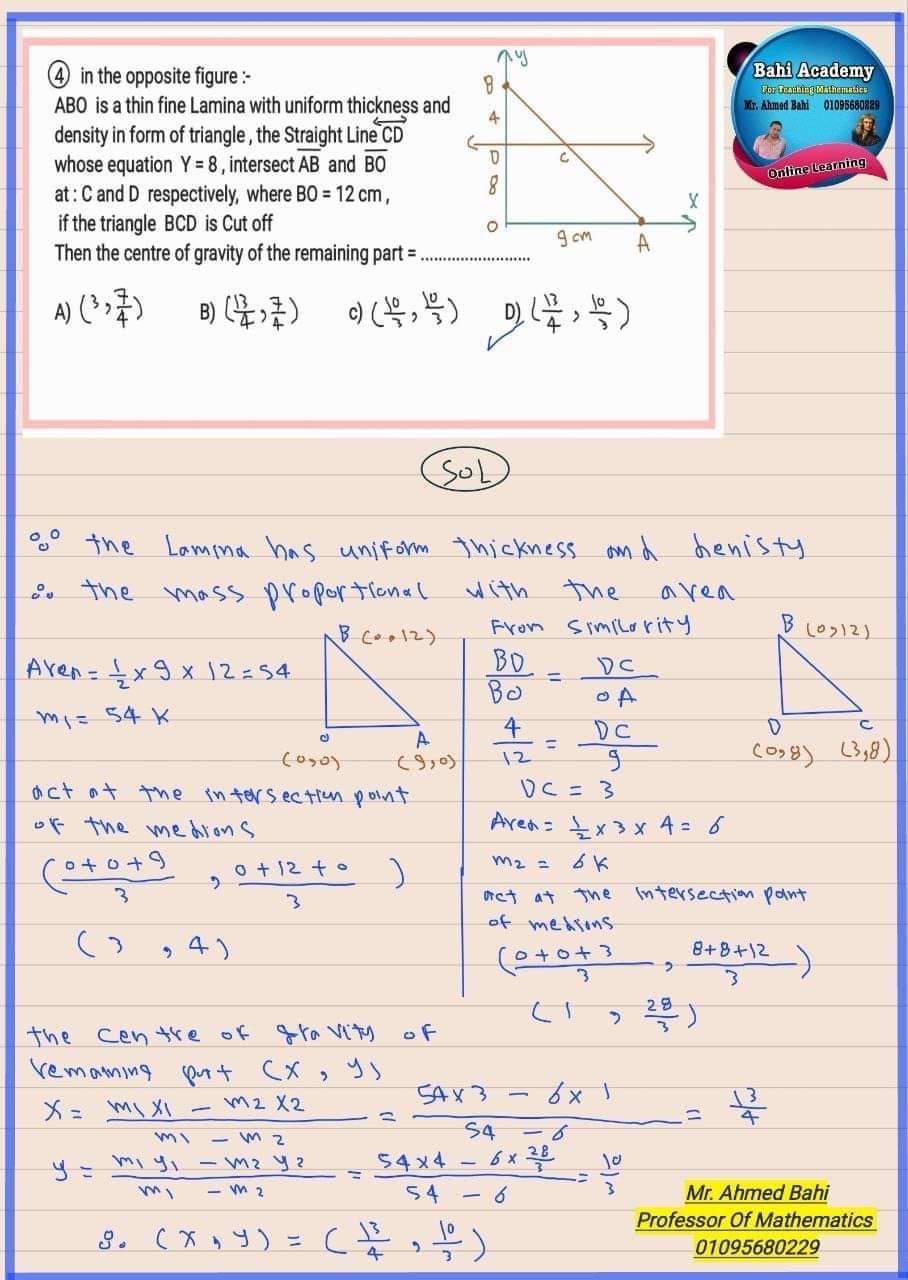 ④ in the opposite figure :-
ABO is a thin fine Lamina with uniform thickness and
density in form of triangle , the Straight Line CD
whose equation Y = 8 , intersect AB and BO
at : C and D respectively, where BO = 12 cm ,
if the triangle BCD is Cut off
Then the centre of gravity of the remaining part = .........................
y
B
4
D
C
8
O
9 cm
A
X
A) (3 , 7/4)
B) (13/4 , 7/4)
c) (10/3 , 10/3)
D) (13/4 , 10/3)
Bahi Academy
For Teaching Mathematics
Mr. Ahmed Bahi 01095680229
Online Learning
SOL
∵ the Lamina has uniform thickness and denisty
∴ the mass proportional with the area
Area = 1/2 × 9 × 12 = 54
m1 = 54 K
B (0,12)
O
A
(0,0)
(9,0)
act at the intersection point
of the medians
( (0+0+9)/3 , (0+12+0)/3 )
(3 , 4)
From Similarity
BD/BO = DC/OA
4/12 = DC/9
DC = 3
B (0,12)
D
C
(0,8)
(3,8)
Area = 1/2 × 3 × 4 = 6
m2 = 6K
act at the intersection point
of medians
( (0+0+3)/3 , (8+8+12)/3 )
(1 , 28/3)
the centre of gravity of
remaining part (X , y)
X = (m1 X1 - m2 X2)/(m1 - m2) = (54×3 - 6×1)/(54 - 6) = 13/4
y = (m1 y1 - m2 y2)/(m1 - m2) = (54×4 - 6×28/3)/(54 - 6) = 10/3
∴ (X , y) = (13/4 , 10/3)
Mr. Ahmed Bahi
Professor Of Mathematics
01095680229